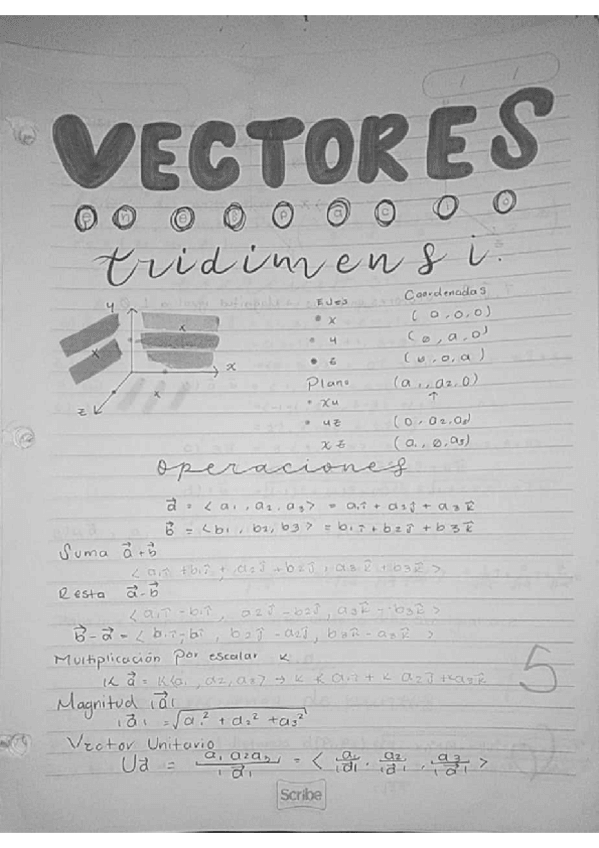 VECTORES
en espacio
tridimensi.
Ejes Coordenadas
y
x (a,0,0)
x
y (0,a,0)
x
x
z (0,0,a)
Plano (a1,a2,0)
x
z
xy
yz (0,a2,a3)
xz (a1,0,a3)
operaciones
a⃗ = <a1, a2, a3> = a1î + a2ĵ + a3k̂
b⃗ = <b1, b2, b3> = b1î + b2ĵ + b3k̂
Suma a⃗+b⃗
<a1î + b1î + a2ĵ + b2ĵ + a3k̂ + b3k̂>
Resta a⃗-b⃗
<a1î - b1î, a2ĵ - b2ĵ, a3k̂ - b3k̂>
b⃗-a⃗ = < , b2ĵ - a2ĵ, b3k̂ - a3k̂ >
Multiplicación por escalar K
K a⃗ = K<a1, a2, a3> → K a1î + K a2ĵ + Ka3k̂
5
Magnitud |a⃗|
|a⃗| = √a1² + a2² + a3²
Vector Unitario
Ua⃗ = a1 a2 a3 / |a⃗| = < a1/|a⃗|, a2/|a⃗|, a3/|a⃗| >
Scribe